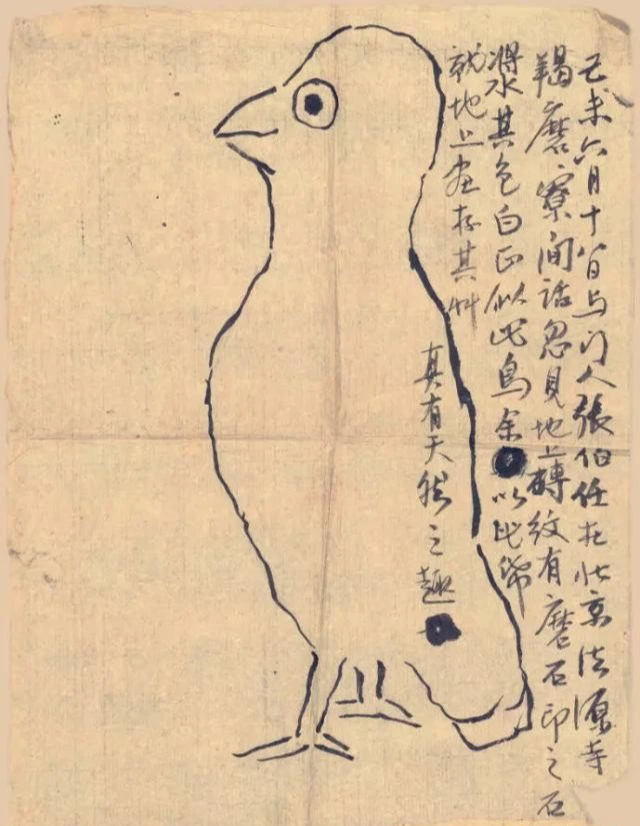 己未六月十八日与门人張伯任在北京法源寺
羯磨寮閒話忽見地上磚紋有磨石印之石
漿水其色白正似此鳥余以此帋
就地上画存其艸
真有天然之趣